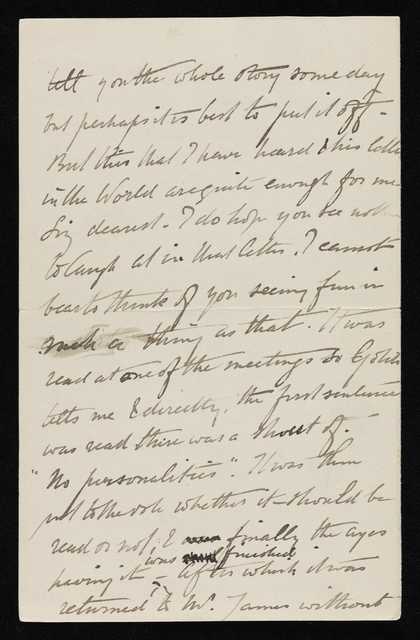 tell you the whole story some day
but perhaps it is best to put it off -
But this that I have heard & his letter
in the World are quite enough for me
Liz dearest. I do hope you see nothing
to laugh at in that letter. I cannot
bear to think of you seeing fun in
such a thing as that. It was
read at one of the meetings so
tells me & directly, the first sentence
was read there was a shout of -
"No personalities". It was then
put to the vote whether it should be
read or not, & finally the ayes
having it was finished - after which it was
returned to W. James without